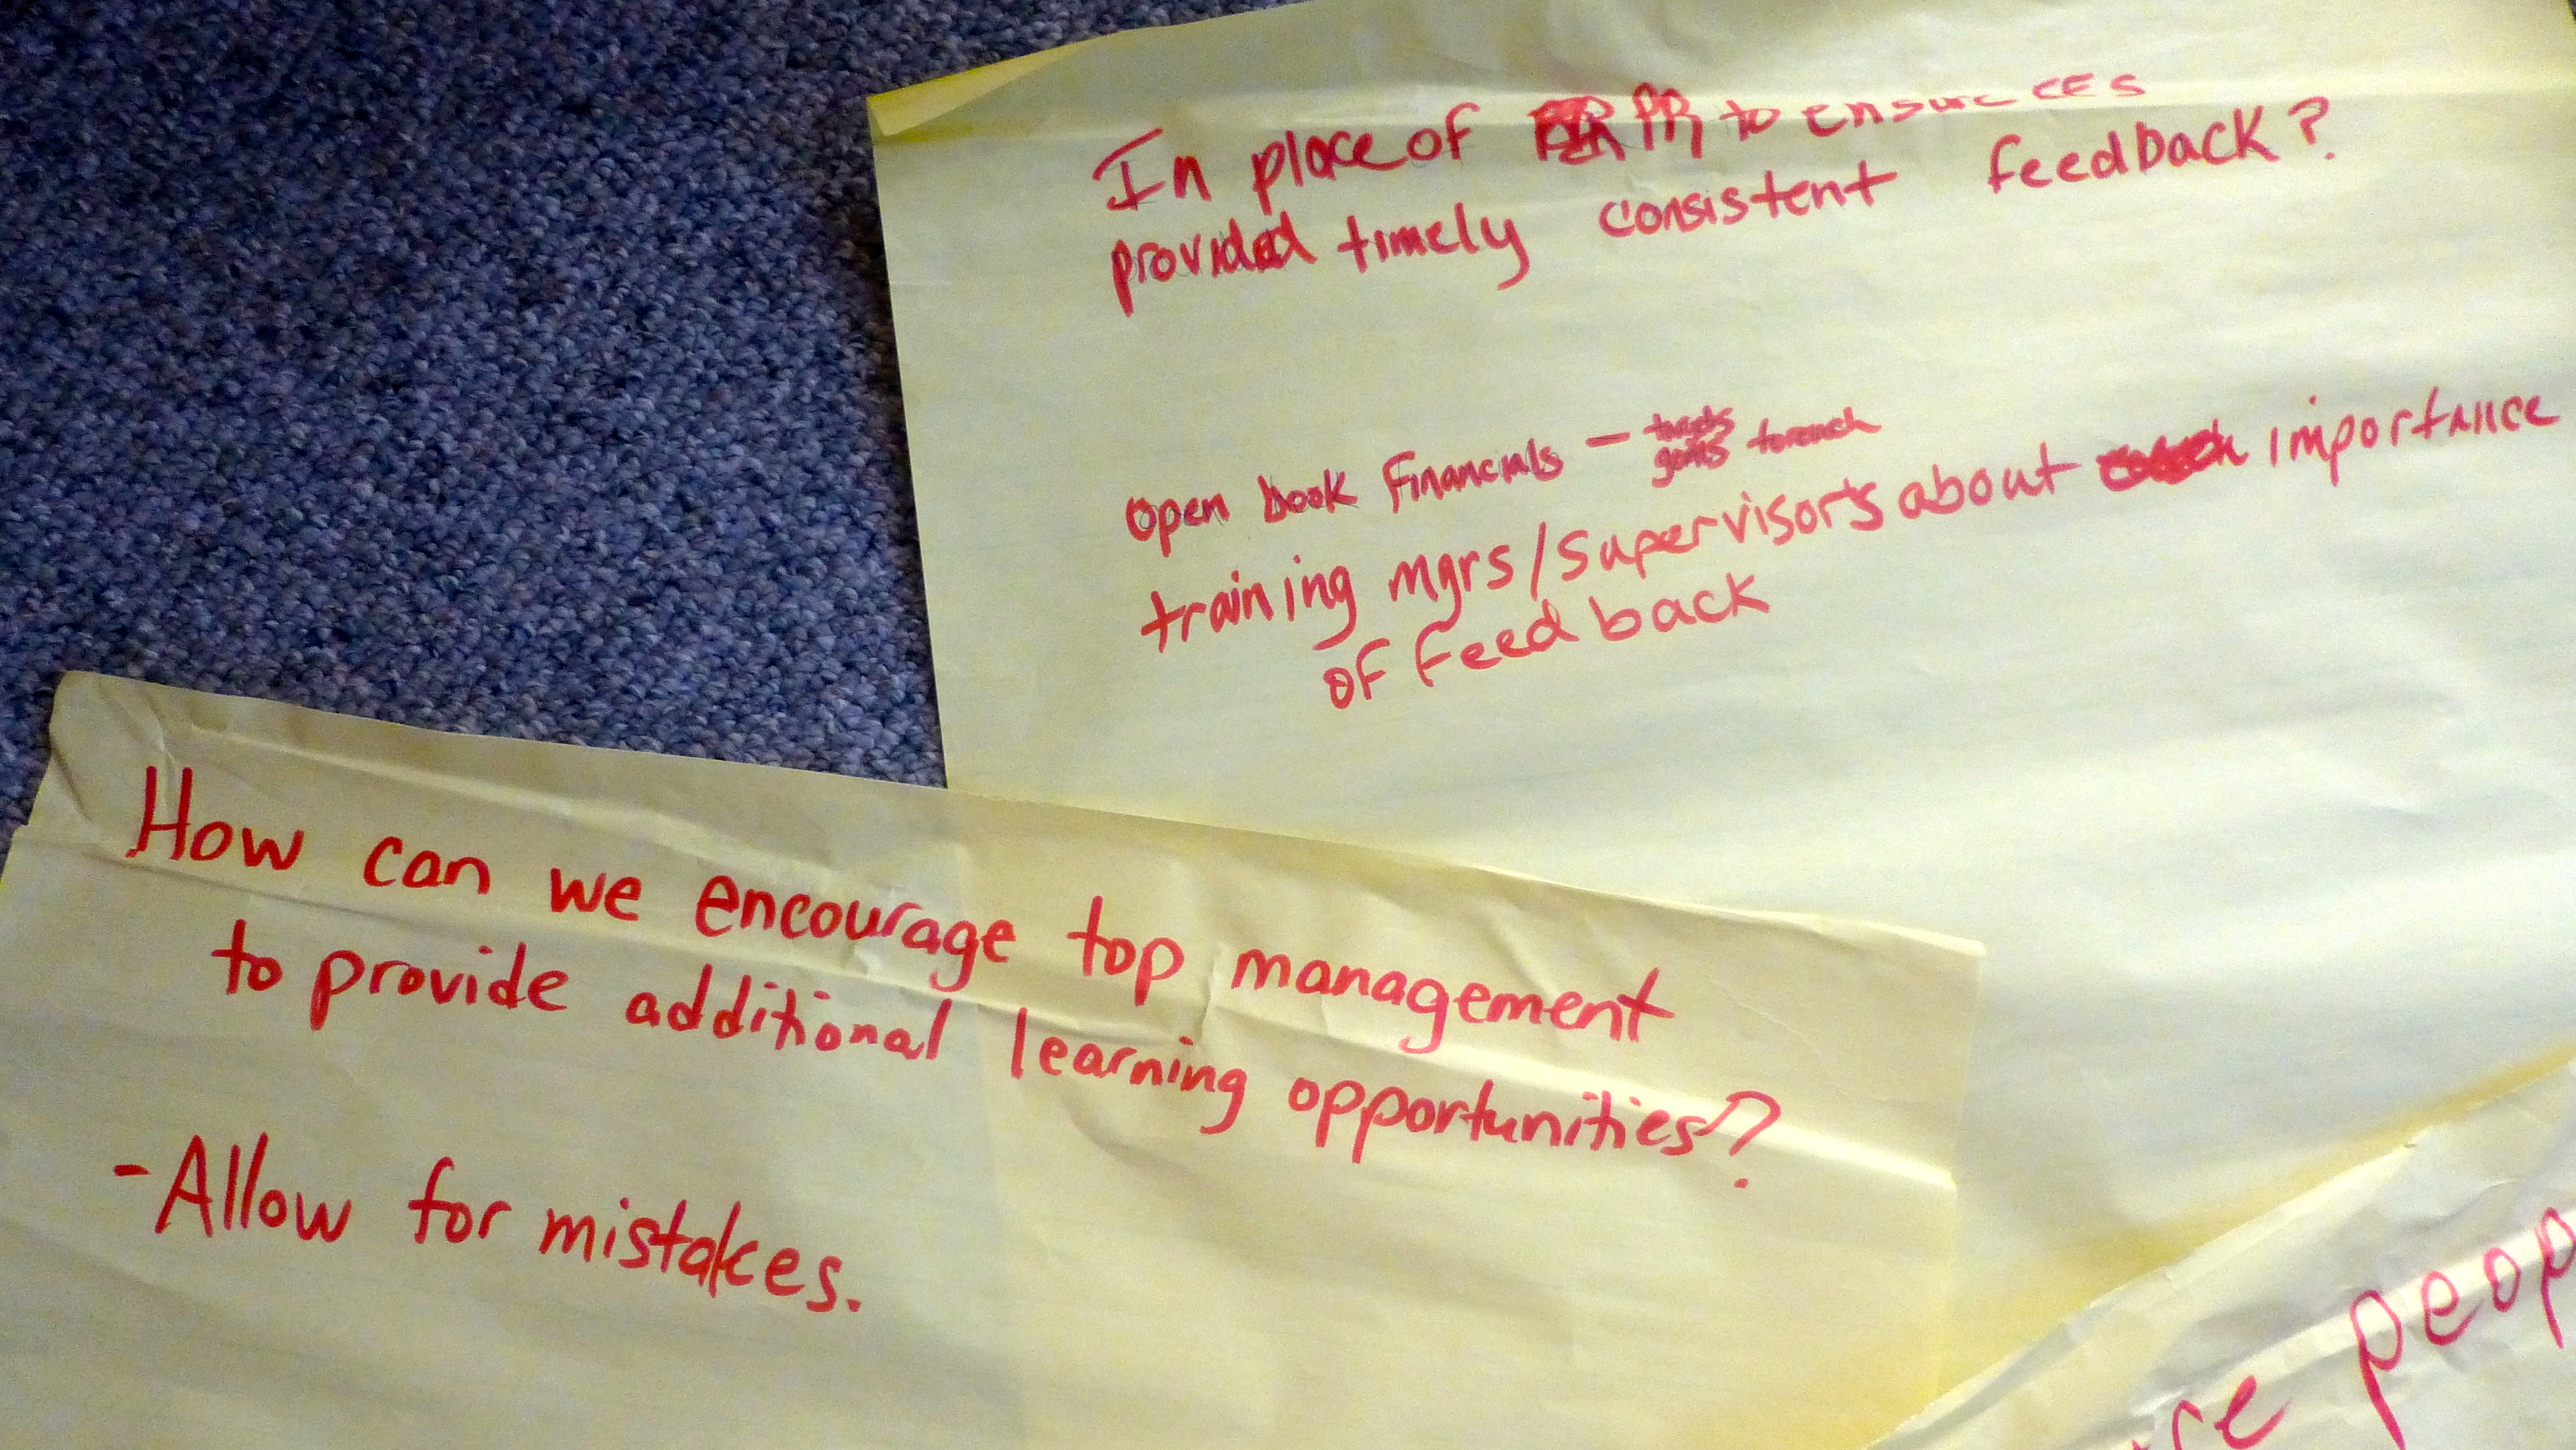 In place of PR to ensure EES
provided timely consistent feedback?
open book financials — targets
goals to reach
training mgrs/supervisors about importance
of feedback
How can we encourage top management
to provide additional learning opportunities?
- Allow for mistakes.
re peop